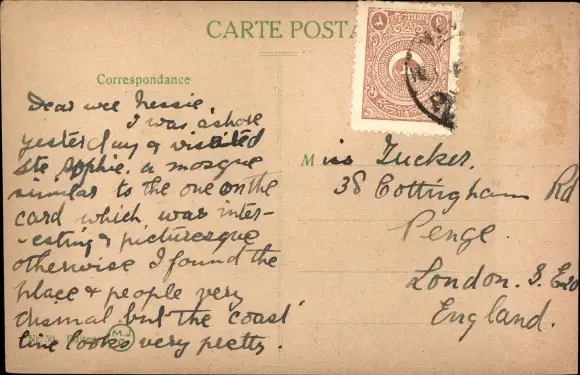 CARTE POSTA
Correspondance
Dear wee Nessie,
I was ashore
yesterday & visited
Ste Sophie. a mosque
similar to the one on the
card which was inter-
-esting & picturesque
otherwise I found the
place & people very
dismal but the coast
line looks very pretty.
MJC
Miss Tucker.
38 Cottingham Rd
Penge.
London. S.E20
England.